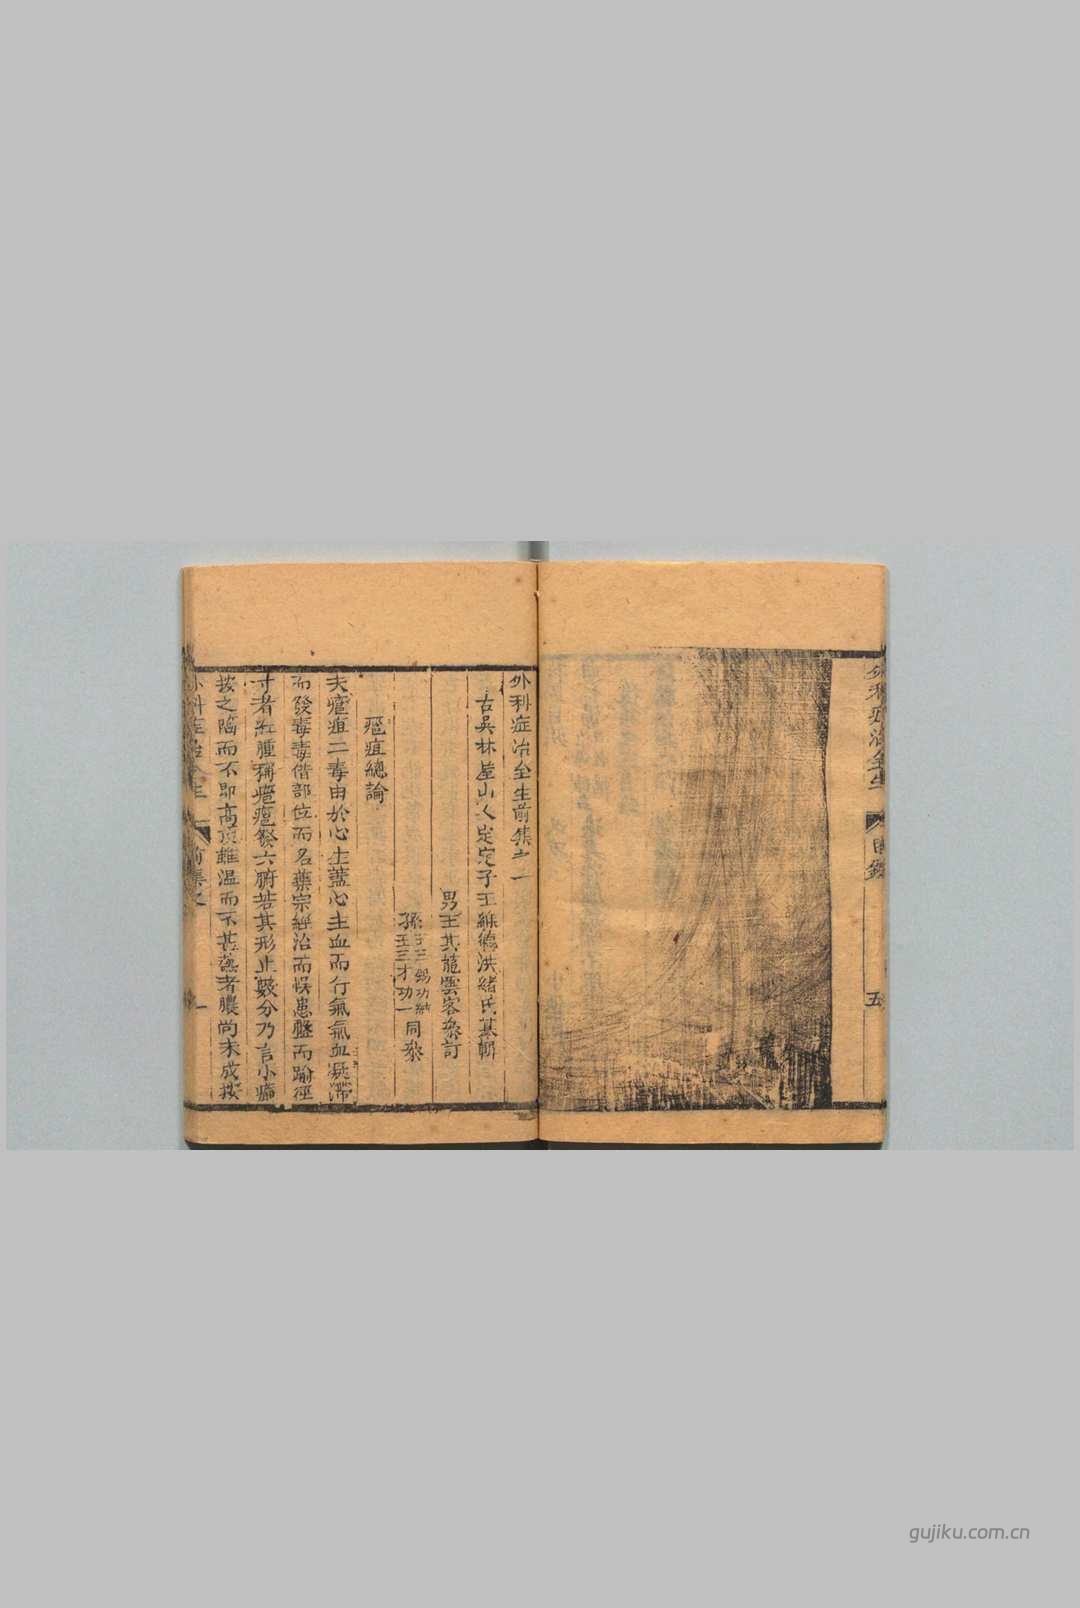 外科症治全生
目錄
五
外科症治全生前集之一
古吳林屋山人定定子王維德洪緒氏纂輯
男王其龍雲客叅訂
孫王三錫功純
王三才功一
同叅
癰疽總論
夫癰疽二毒由於心主蓋心主血而行氣氣血凝滯
而發毒毒借部位而名藥宗經治而悞患盤而踰徑
寸者紅腫稱癰癰發六腑若其形止數分乃言小癤
按之陷而不即高頂雖溫而不甚𤍠者膿尚未成按
外科症治全生
前集之
一
gujiku.com.cn